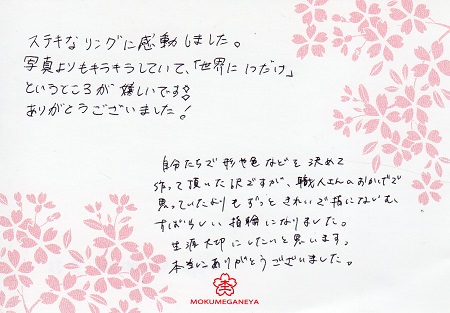 ステキなリングに感動しました。
写真よりもキラキラしていて、「世界に1つだけ」
というところが嬉しいです!!
ありがとうございました!
自分たちで形や色などを決めて
作って頂いた訳ですが、職人さんのおかげで
思っていたよりもずっときれいで指になじむ
すばらしい指輪になりました。
生涯大切にしたいと思います。
本当にありがとうございました。
MOKUMEGANEYA